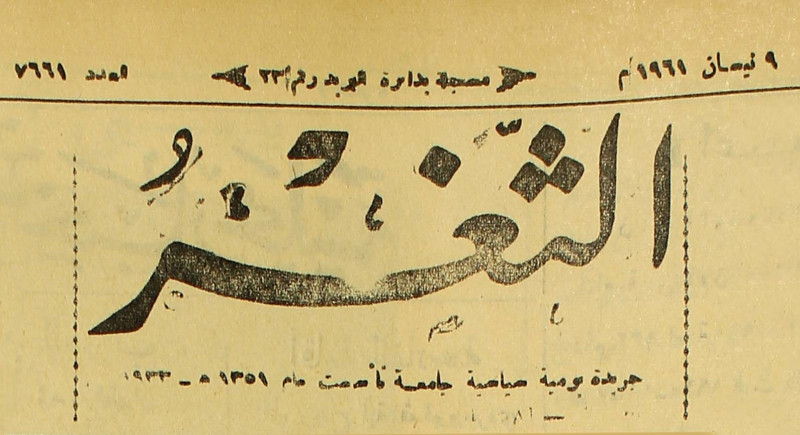 ٩ نيسان ١٩٦١م مسجلة بدائرة البريد رقم ٢٣ العدد ٧٦٦١
الثغر
جريدة يومية سياسية جامعة تأسست عام ١٣٥١ هـ ـ ١٩٣٣